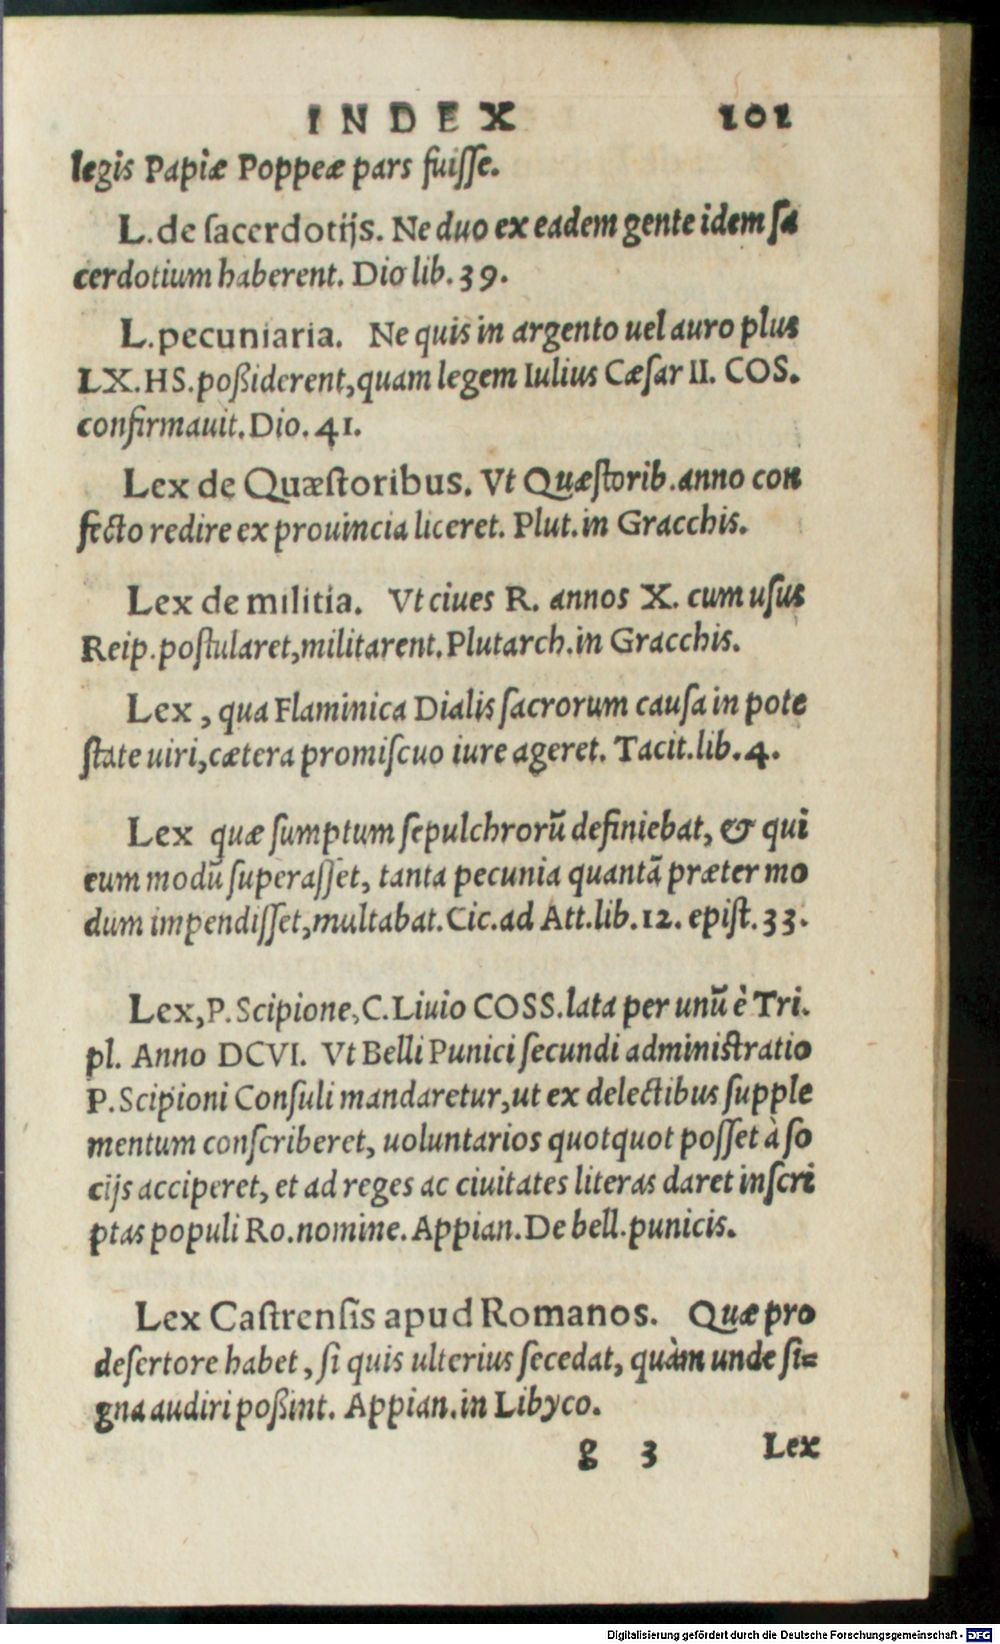 INDEX 101
legis Papiæ Poppeæ pars fuiſſe.
L. de ſacerdotijs. Ne duo ex eadem gente idem ſa
cerdotium haberent. Dio lib. 39.
L. pecuniaria. Ne quis in argento uel auro plus
LX. HS. poßiderent, quam legem Iulius Cæſar II. COS.
confirmauit. Dio. 41.
Lex de Quæſtoribus. Vt Quæſtorib. anno con
fecto redire ex prouincia liceret. Plut. in Gracchis.
Lex de militia. Vt ciues R. annos X. cum uſus
Reip. poſtularet, militarent. Plutarch. in Gracchis.
Lex, qua Flaminica Dialis ſacrorum cauſa in pote
ſtate uiri, cætera promiſcuo iure ageret. Tacit. lib. 4.
Lex quæ ſumptum ſepulchrorũ definiebat, & qui
eum modũ ſuperaſſet, tanta pecunia quantã præter mo
dum impendiſſet, multabat. Cic. ad Att. lib. 12. epiſt. 33.
Lex, P. Scipione, C. Liuio COSS. lata per unũ è Tri.
pl. Anno DCVI. Vt Belli Punici ſecundi adminiſtratio
P. Scipioni Conſuli mandaretur, ut ex delectibus ſupple
mentum conſcriberet, uoluntarios quotquot poſſet à ſo
cijs acciperet, et ad reges ac ciuitates literas daret inſcri
ptas populi Ro. nomine. Appian. De bell. punicis.
Lex Caſtrenſis apud Romanos. Quæ pro
deſertore habet, ſi quis ulterius ſecedat, quàm unde ſi=
gna audiri poßint. Appian. in Libyco.
g 3 Lex
Digitalisierung gefördert durch die Deutsche Forschungsgemeinschaft - DFG